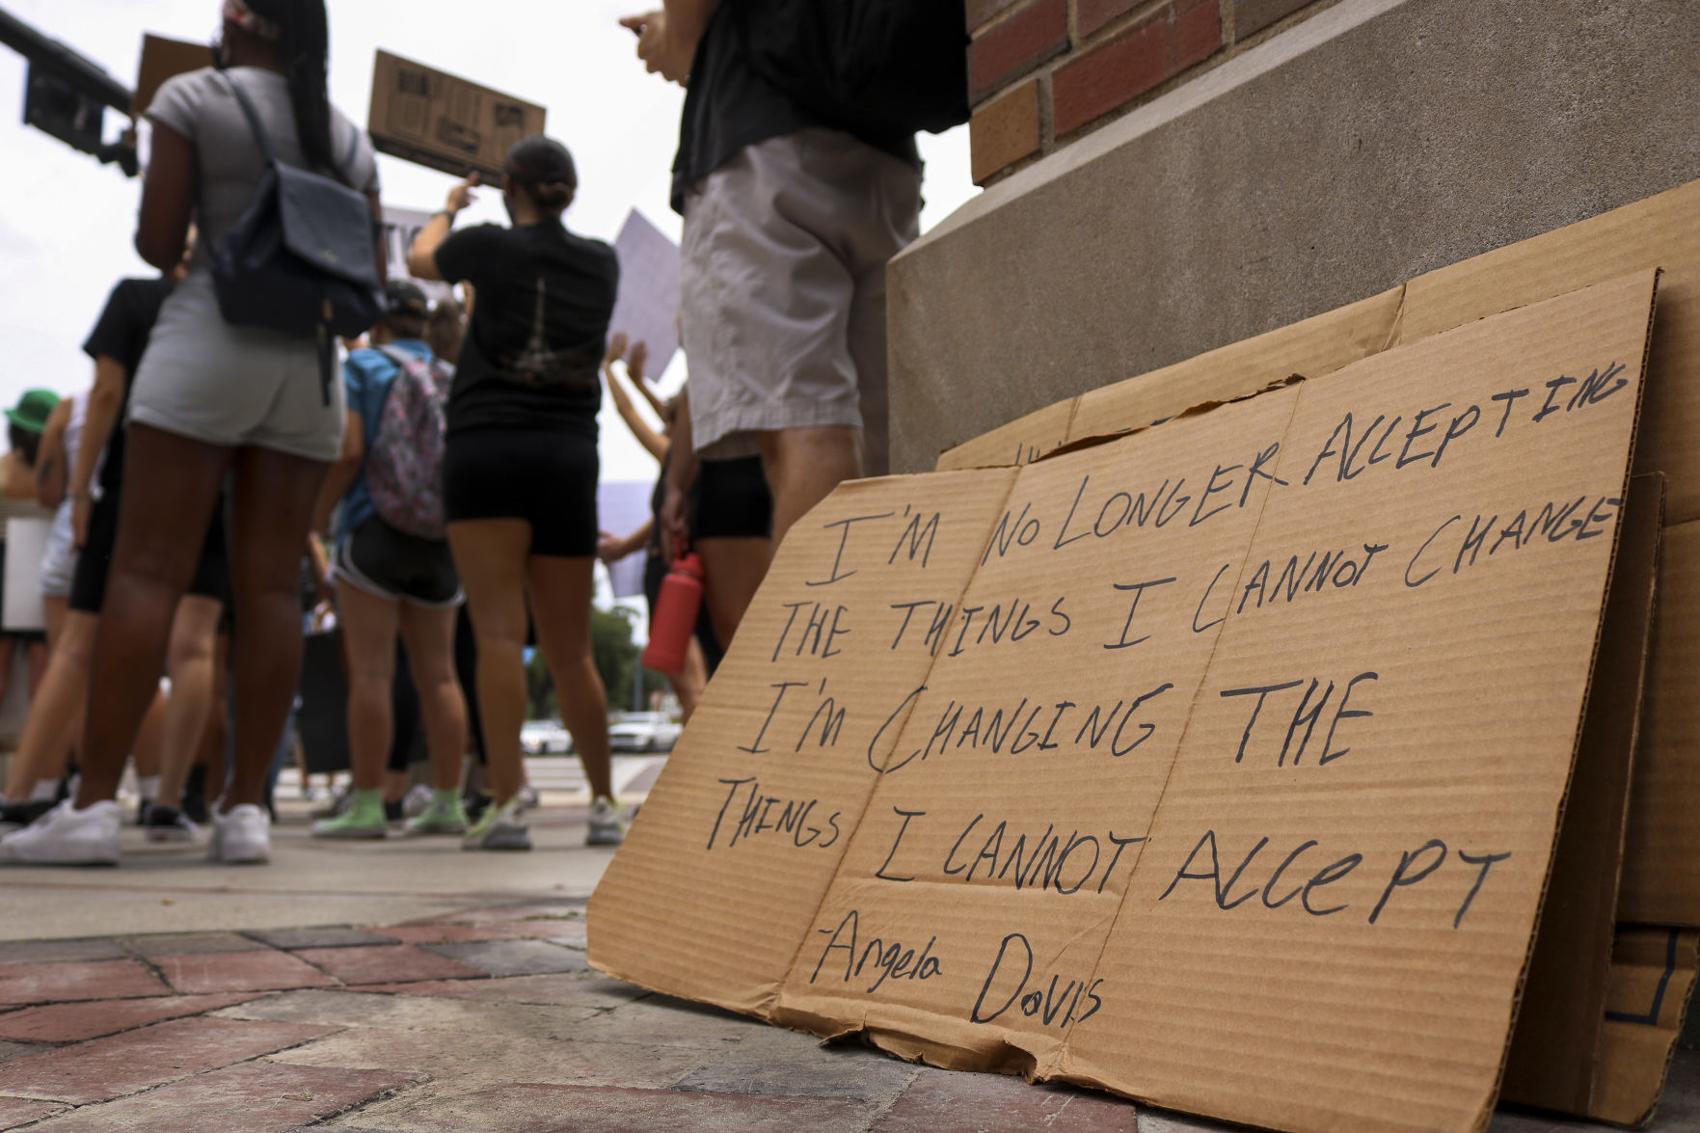 I'M NO LONGER ACCEPTING
THE THINGS I CANNOT CHANGE
I'M CHANGING THE
THINGS I CANNOT ACCEPT
-Angela Davis